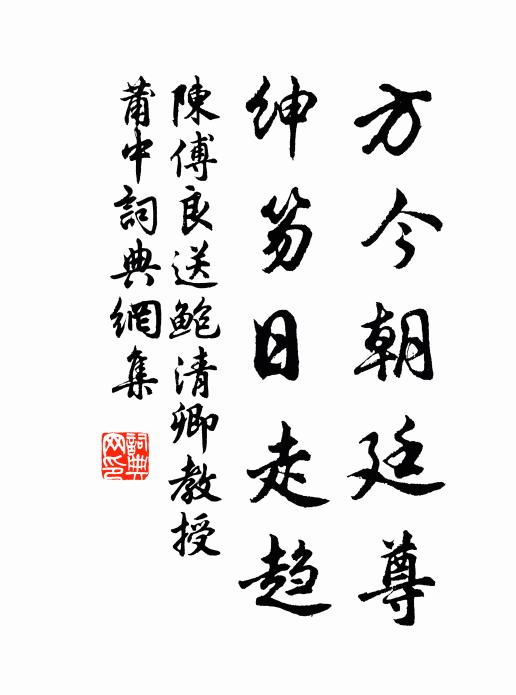 方今朝廷尊
紳笏日走趋
陳傅良送鮑清卿教授
莆中詞典網集
詞典
网印